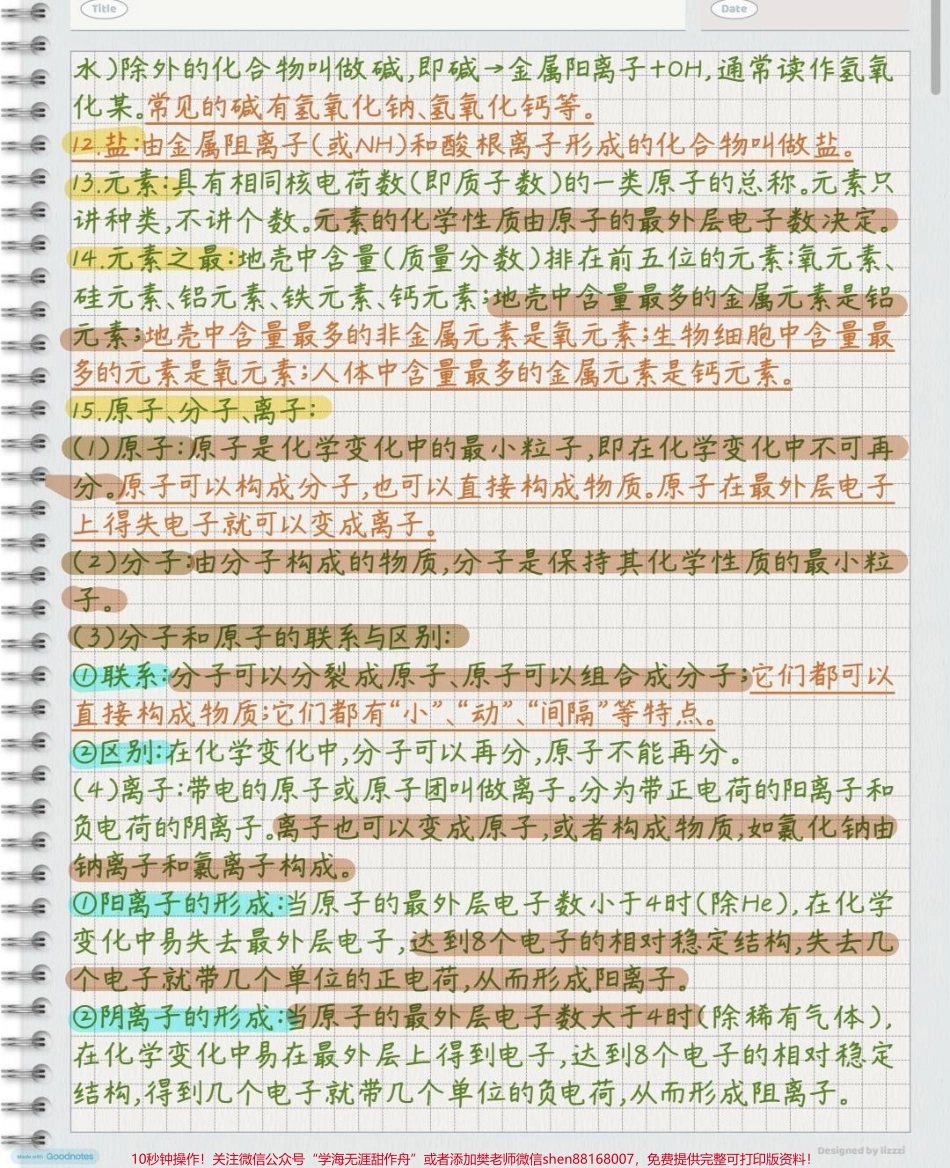 Title
Date
水)除外的化合物叫做碱,即碱→金属阳离子+OH,通常读作氢氧
化某。常见的碱有氢氧化钠、氢氧化钙等。
12.盐:由金属阻离子(或NH)和酸根离子形成的化合物叫做盐。
13.元素:具有相同核电荷数(即质子数)的一类原子的总称。元素只
讲种类,不讲个数。元素的化学性质由原子的最外层电子数决定。
14.元素之最:地壳中含量(质量分数)排在前五位的元素:氧元素、
硅元素、铝元素、铁元素、钙元素;地壳中含量最多的金属元素是铝
元素;地壳中含量最多的非金属元素是氧元素;生物细胞中含量最
多的元素是氧元素;人体中含量最多的金属元素是钙元素。
15.原子、分子、离子:
(1)原子:原子是化学变化中的最小粒子,即在化学变化中不可再
分。原子可以构成分子,也可以直接构成物质。原子在最外层电子
上得失电子就可以变成离子。
(2)分子:由分子构成的物质,分子是保持其化学性质的最小粒
子。
(3)分子和原子的联系与区别:
①联系:分子可以分裂成原子、原子可以组合成分子;它们都可以
直接构成物质;它们都有“小”、“动”、“间隔”等特点。
②区别:在化学变化中,分子可以再分,原子不能再分。
(4)离子:带电的原子或原子团叫做离子。分为带正电荷的阳离子和
负电荷的阴离子。离子也可以变成原子,或者构成物质,如氯化钠由
钠离子和氯离子构成。
①阳离子的形成:当原子的最外层电子数小于4时(除He),在化学
变化中易失去最外层电子,达到8个电子的相对稳定结构,失去几
个电子就带几个单位的正电荷,从而形成阳离子。
②阴离子的形成:当原子的最外层电子数大于4时(除稀有气体),
在化学变化中易在最外层上得到电子,达到8个电子的相对稳定
结构,得到几个电子就带几个单位的负电荷,从而形成阻离子。
Made with Goodnotes
Designed by lizzzi
10秒钟操作！关注微信公众号“学海无涯甜作舟”或者添加樊老师微信shen88168007，免费提供完整可打印版资料！